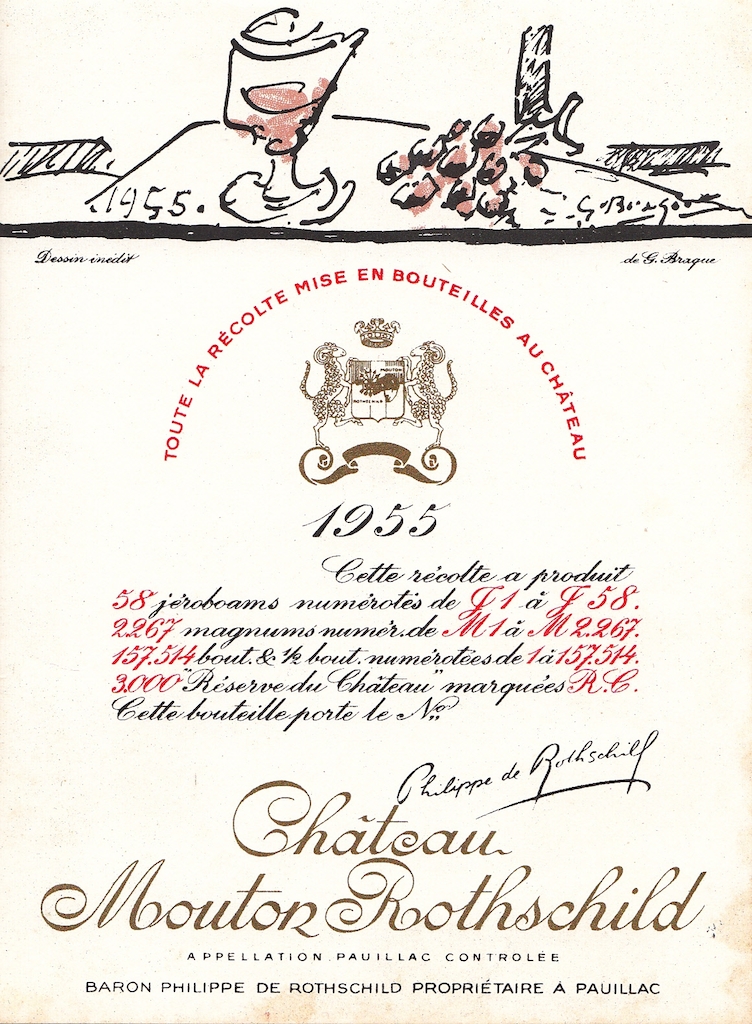 1955.
G Braque
Dessin inédit
de G. Braque
TOUTE LA RÉCOLTE MISE EN BOUTEILLES AU CHÂTEAU
MOUTON
ROTHSCHILD
1955
Cette récolte a produit
58 jéroboams numérotés de J 1 à J 58.
2.267 magnums numér. de M 1 à M 2.267.
157.514 bout. & ½ bout. numérotées de 1 à 157.514.
3.000 "Réserve du Château" marquées R.C.
Cette bouteille porte le No
Philippe de Rothschild
Château
Mouton Rothschild
APPELLATION PAUILLAC CONTROLÉE
BARON PHILIPPE DE ROTHSCHILD PROPRIÉTAIRE A PAUILLAC